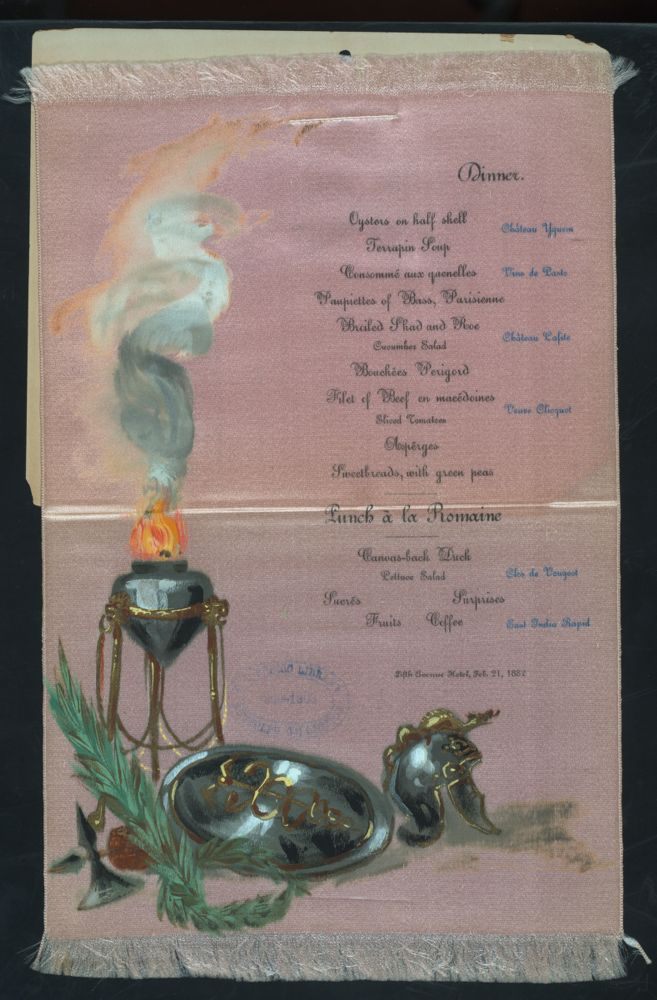 Dinner.
Oysters on half shell
Château Yquem
Terrapin Soup
Consommé aux quenelles
Vins de Paste
Paupiettes of Bass, Parisienne
Broiled Shad and Roe
Château Lafite
Cucumber Salad
Bouchées Perigord
Filet of Beef en macédoines
Veuve Clicquot
Sliced Tomatoes
Asperges
Sweetbreads, with green peas
Punch à la Romaine
Canvas-back Duck
Lettuce Salad
Clos de Vougeot
Sucrés Surprises
Fruits Coffee
East India Rapid
Fifth Avenue Hotel, Feb. 21, 1882